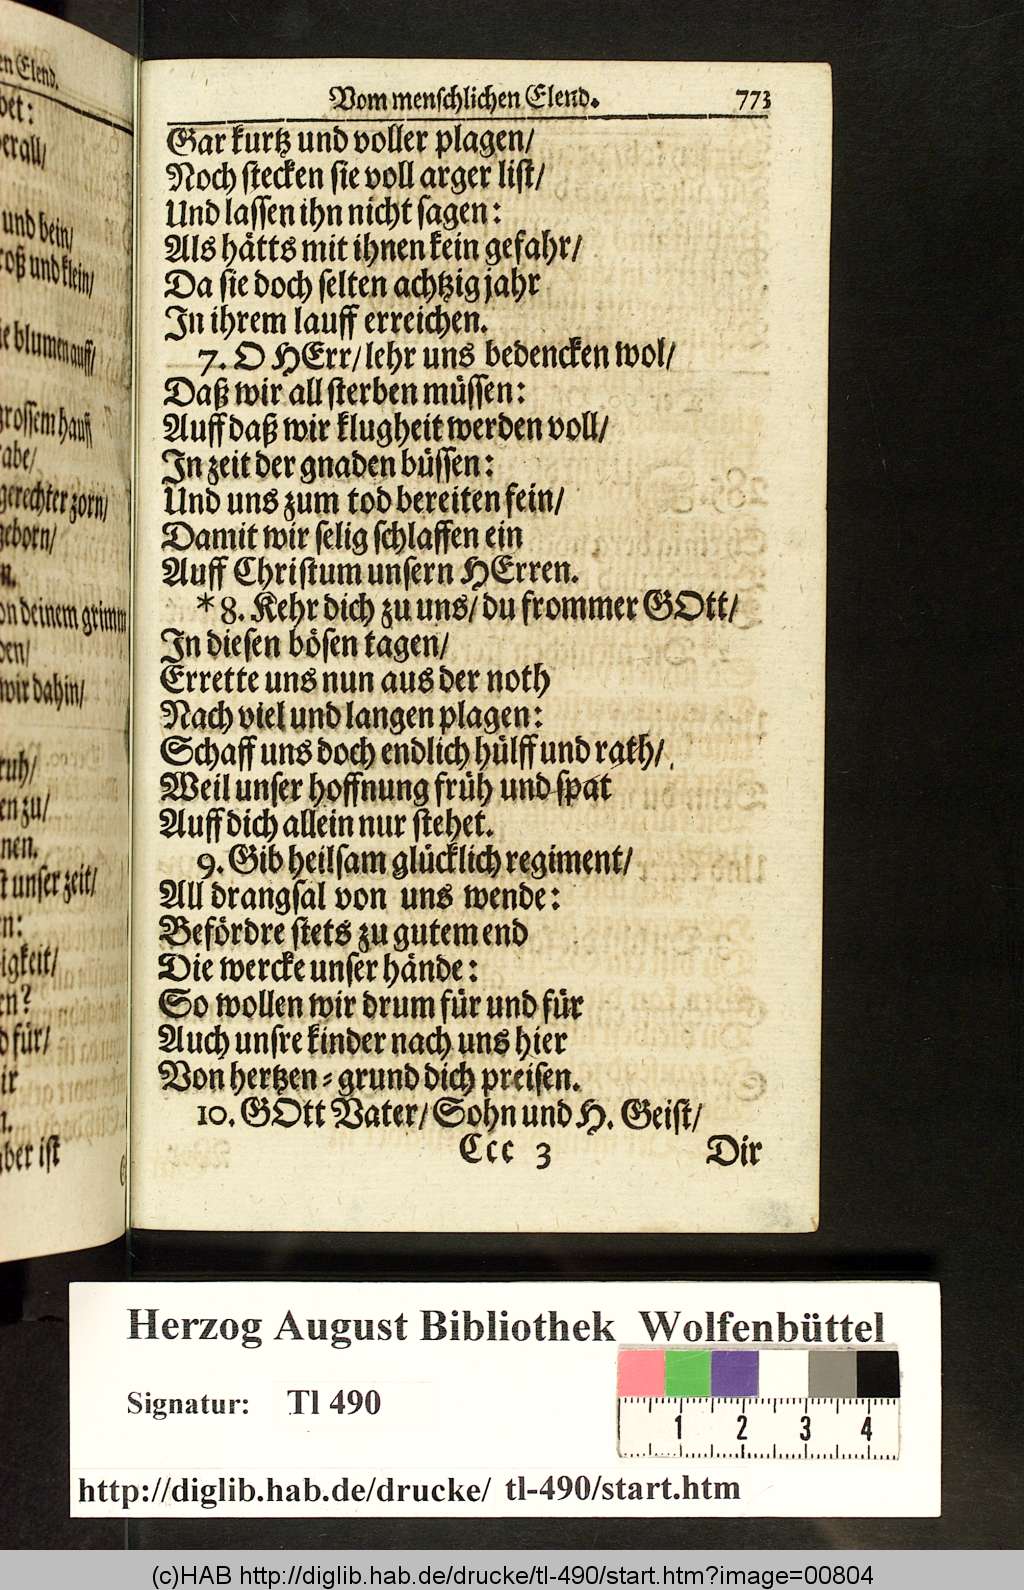 en Elend.
bet:
erall/
und bein/
roß und klein/
ie blumen auff/
grossem hauff
abe/
gerechter zorn/
geborn/
n.
on deinem grimm
den/
wir dahin/
ruh/
en zu/
nen.
st unser zeit/
n:
igkeit/
en?
d für/
ir
n.
aber ist
Vom menschlichen Elend. 773
Gar kurtz und voller plagen/
Noch stecken sie voll arger list/
Und lassen ihn nicht sagen:
Als hätts mit ihnen kein gefahr/
Da sie doch selten achtzig jahr
In ihrem lauff erreichen.
7. O HErr/ lehr uns bedencken wol/
Daß wir all sterben müssen:
Auff daß wir klugheit werden voll/
In zeit der gnaden büssen:
Und uns zum tod bereiten fein/
Damit wir selig schlaffen ein
Auff Christum unsern HErren.
*8. Kehr dich zu uns/ du frommer GOtt/
In diesen bösen tagen/
Errette uns nun aus der noth
Nach viel und langen plagen:
Schaff uns doch endlich hülff und rath/
Weil unser hoffnung früh und spat
Auff dich allein nur stehet.
9. Gib heilsam glücklich regiment/
All drangsal von uns wende:
Befördre stets zu gutem end
Die wercke unser hände:
So wollen wir drum für und für
Auch unsre kinder nach uns hier
Von hertzen-grund dich preisen.
10. GOtt Vater/ Sohn und H. Geist/
Ccc 3 Dir
Herzog August Bibliothek Wolfenbüttel
Signatur: Tl 490
1 2 3 4
http://diglib.hab.de/drucke/ tl-490/start.htm
(c)HAB http://diglib.hab.de/drucke/tl-490/start.htm?image=00804